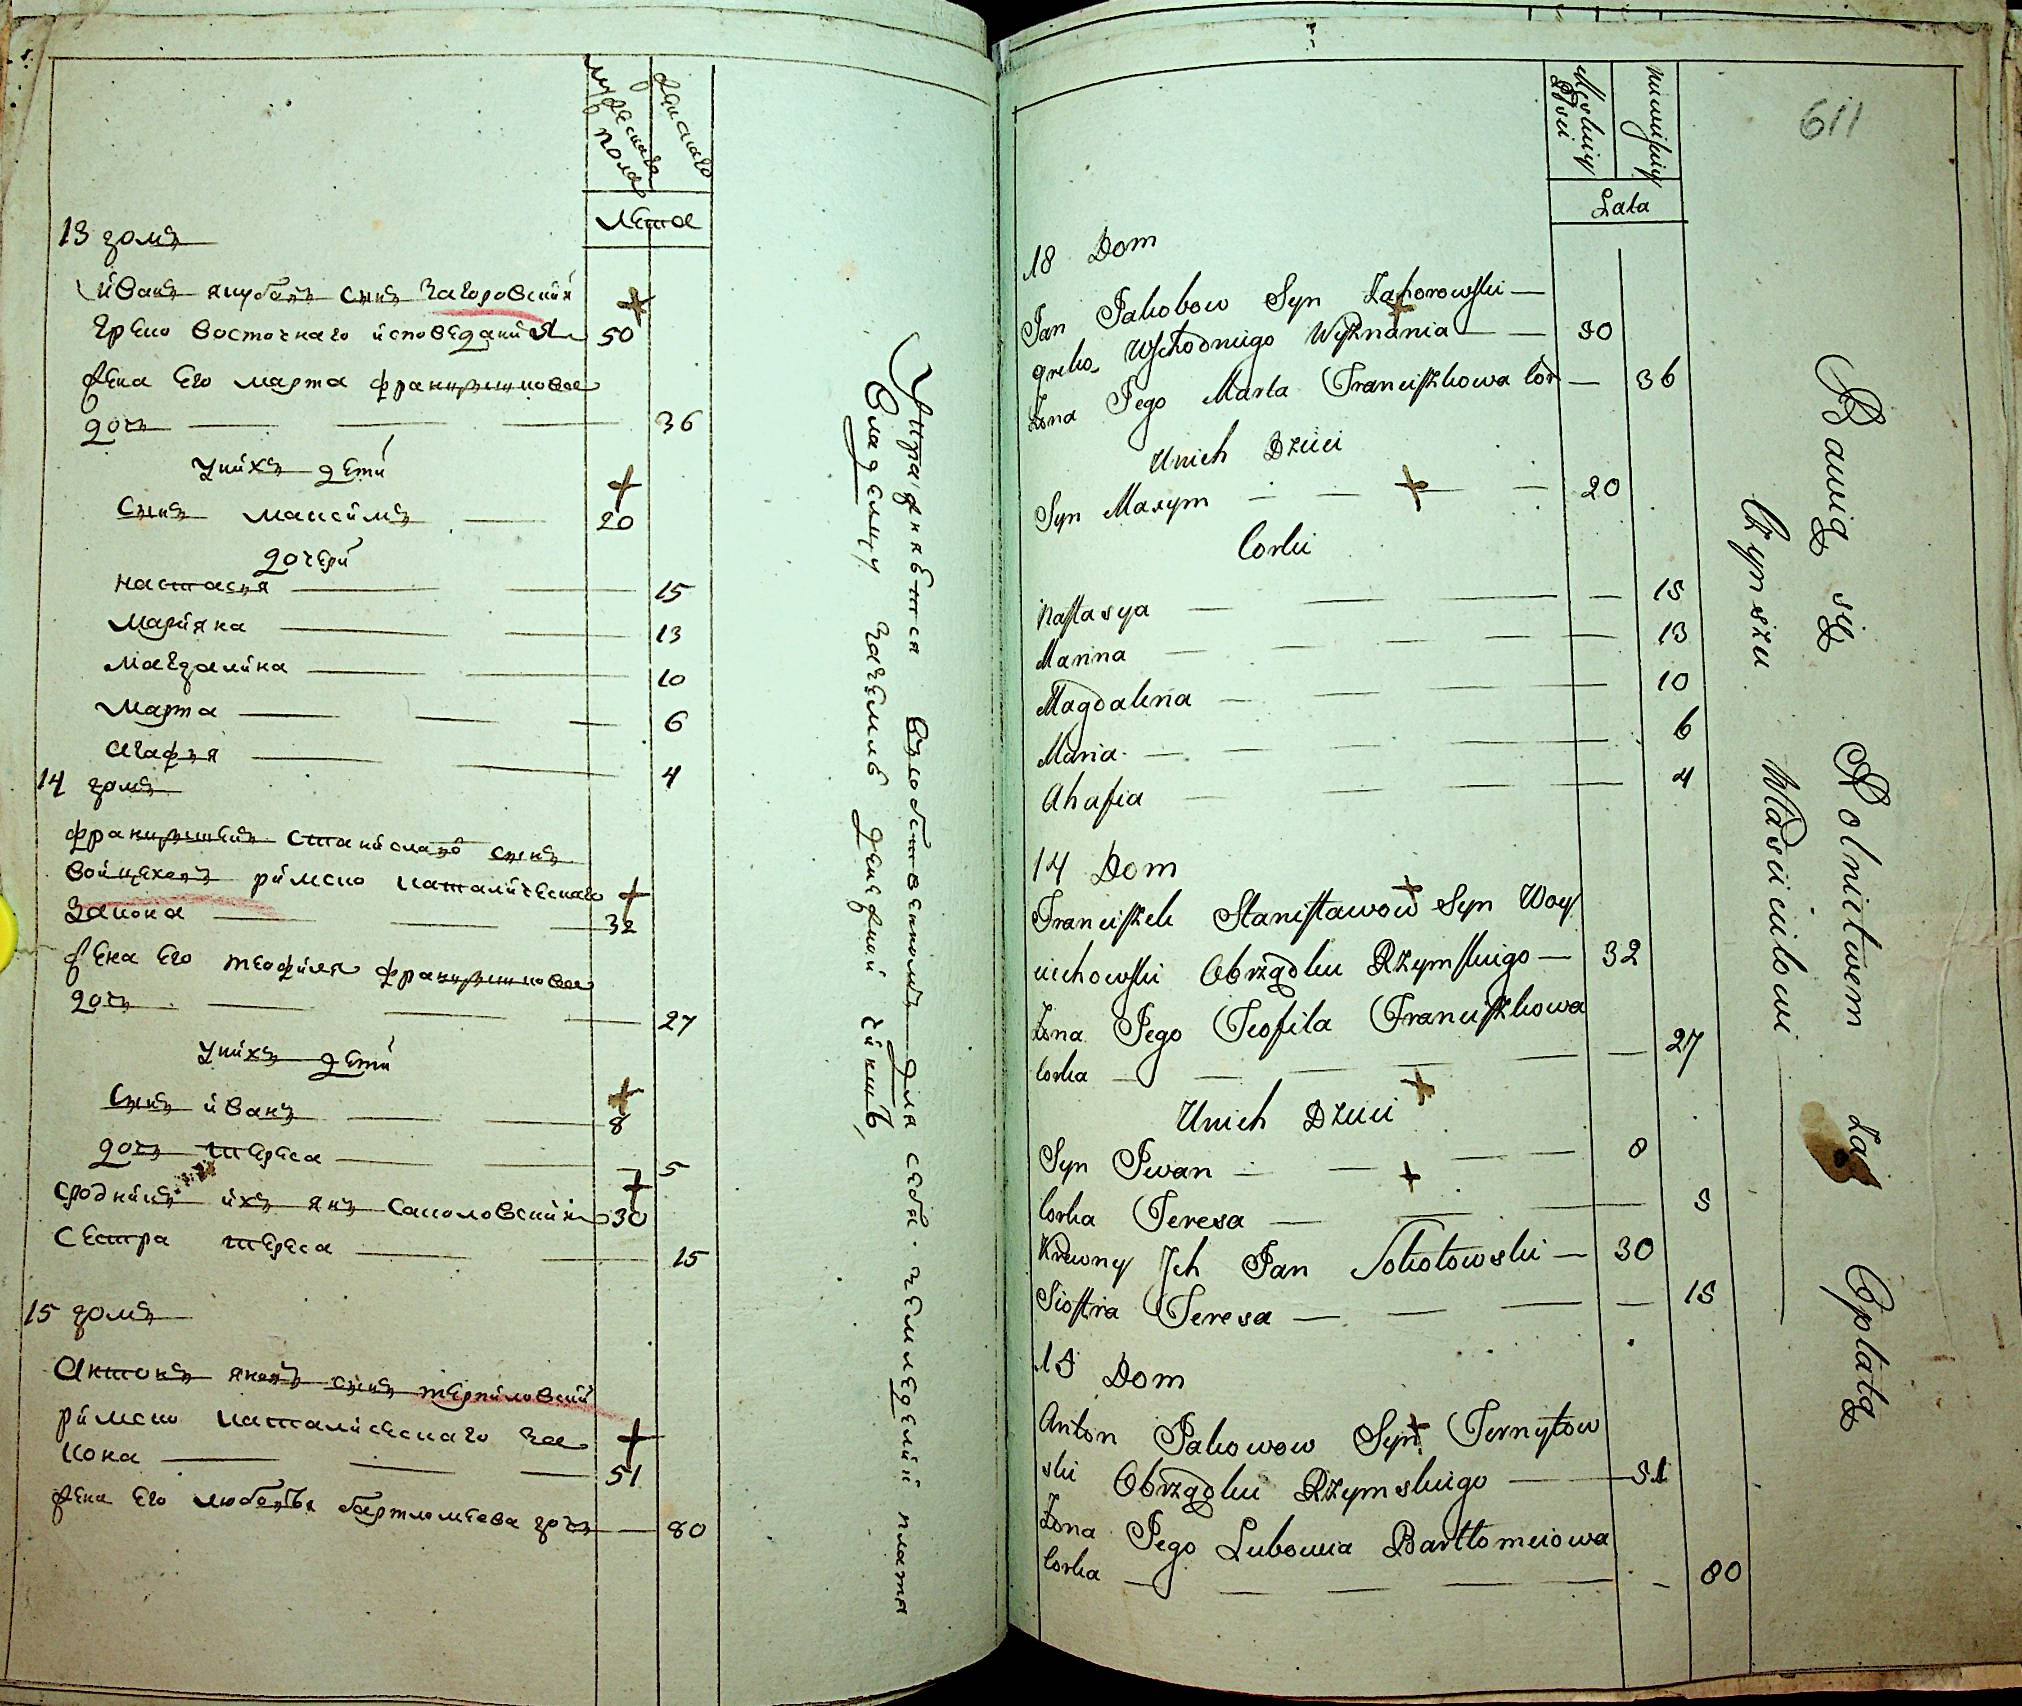 мужеска пола
женскаго
Лета
13 домъ
Иванъ якубовъ сынъ Загоровский
Греко восточнаго исповедания 50
жена Его марта францишкова
дочь 36
У нихъ дети
сынъ максимъ 20
дочери
настася 15
Марияна 13
Магдалина 10
Марта 6
Агафья 4
14 домъ
францишекъ станиславовъ сынъ
войцеховъ римско католическаго
Закона 32
жена Его теофиля францишкова
дочь 27
У нихъ дети
сынъ иванъ 8
дочь тереса 5
сродникъ ихъ янъ соколовский 30
сестра тереса 15
15 домъ
Антонъ яковъ сынъ терпиловский
римско католическаго за
кона 51
жена Его любовья бартломеева дочь 80
Упражняются въ собственномъ для себя земледелии платя
Владелцу за землю денежный чиншъ,
611
Męskiey Płci
niewieskiey
Lata
18 Dom
Jan Jakobow Syn Zahorowski
greko Wschodniego Wyznania 50
Zona Jego Marta Franciszkowa Cor 36
Unich Dzieci
Syn Maxym 20
Corki
Nastasya 15
Marina 13
Magdalena 10
Maria 6
Ahafia 4
14 Dom
Franciszek Stanisławow Syn Woy
ciechowski Obrządku Rzymskiego 32
Zona Jego Teofila Franciszkowa
Corka 27
Unich Dzieci
Syn Iwan 8
Corka Teresa 5
Krewny Ich Jan Sokołowski 30
Siostra Teresa 15
15 Dom
Anton Jakowow Syn Ternyłow
ski Obrządku Rzymskiego 51
Zona Jego Lubowia Bartłomeiowa
Corka 80
Bawią się Rolnictwem za Opłatą
Czynszu Właścicielowi